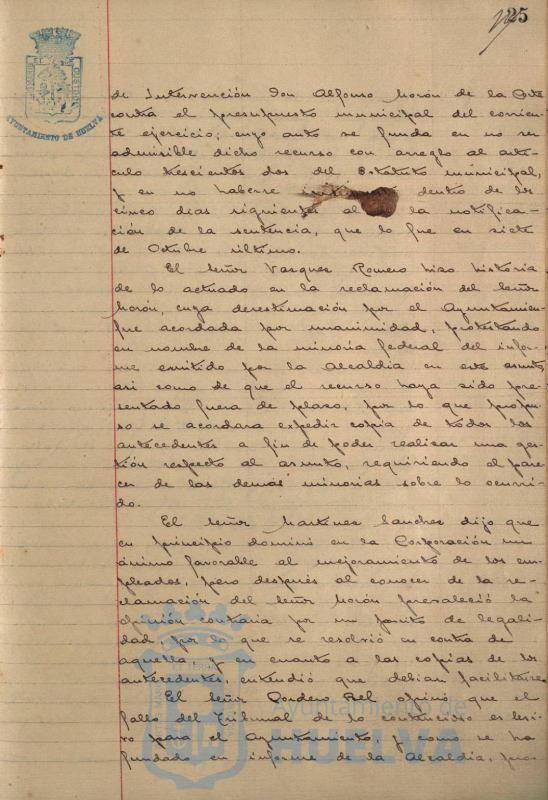 25
AYUNTAMIENTO DE HUELVA
de Intervención Don Alfonso Morón de la Corte
contra el presupuesto municipal del corrien-
te ejercicio; cuyo auto se funda en no ser
admisible dicho recurso con arreglo al artí-
culo trescientos dos del Estatuto municipal,
y en no haberse dentro de los
cinco días siguientes al la notifica-
ción de la sentencia, que lo fue en siete
de Octubre último.
El Señor Vasquez Romero hizo historia
de lo actuado en la reclamación del Señor
Morón, cuya desestimación por el Ayuntamien-
fue acordada por unanimidad, protestando
en nombre de la minoría federal del infor-
me emitido por la Alcaldía en este asunto,
asi como de que el recurso haya sido pre-
sentado fuera de plazo, por lo que propu-
so se acordara expedir copia de todos los
antecedentes a fin de poder realizar una ges-
tión respecto al asunto, requiriendo el pare-
cer de las demás minorías sobre lo ocurri-
do.
El Señor Martinez Sanchez dijo que
en principio dominó en la Corporación un
ánimo favorable al mejoramiento de los em-
pleados, pero después al conocer de la re-
clamación del Señor Morón prevaleció la
opinión contraria por un purito de legali-
dad, por lo que se resolvió en contra de
aquella, y en cuanto a las copias de los
antecedentes, entendió que debian facilitarse.
El Señor Cordero Bel opinó que el
fallo del Tribunal de lo contencioso es lesi-
vo para el Ayuntamiento, y como se ha
fundado en informe de la Alcaldía, pro-
Ayuntamiento de
HUELVA